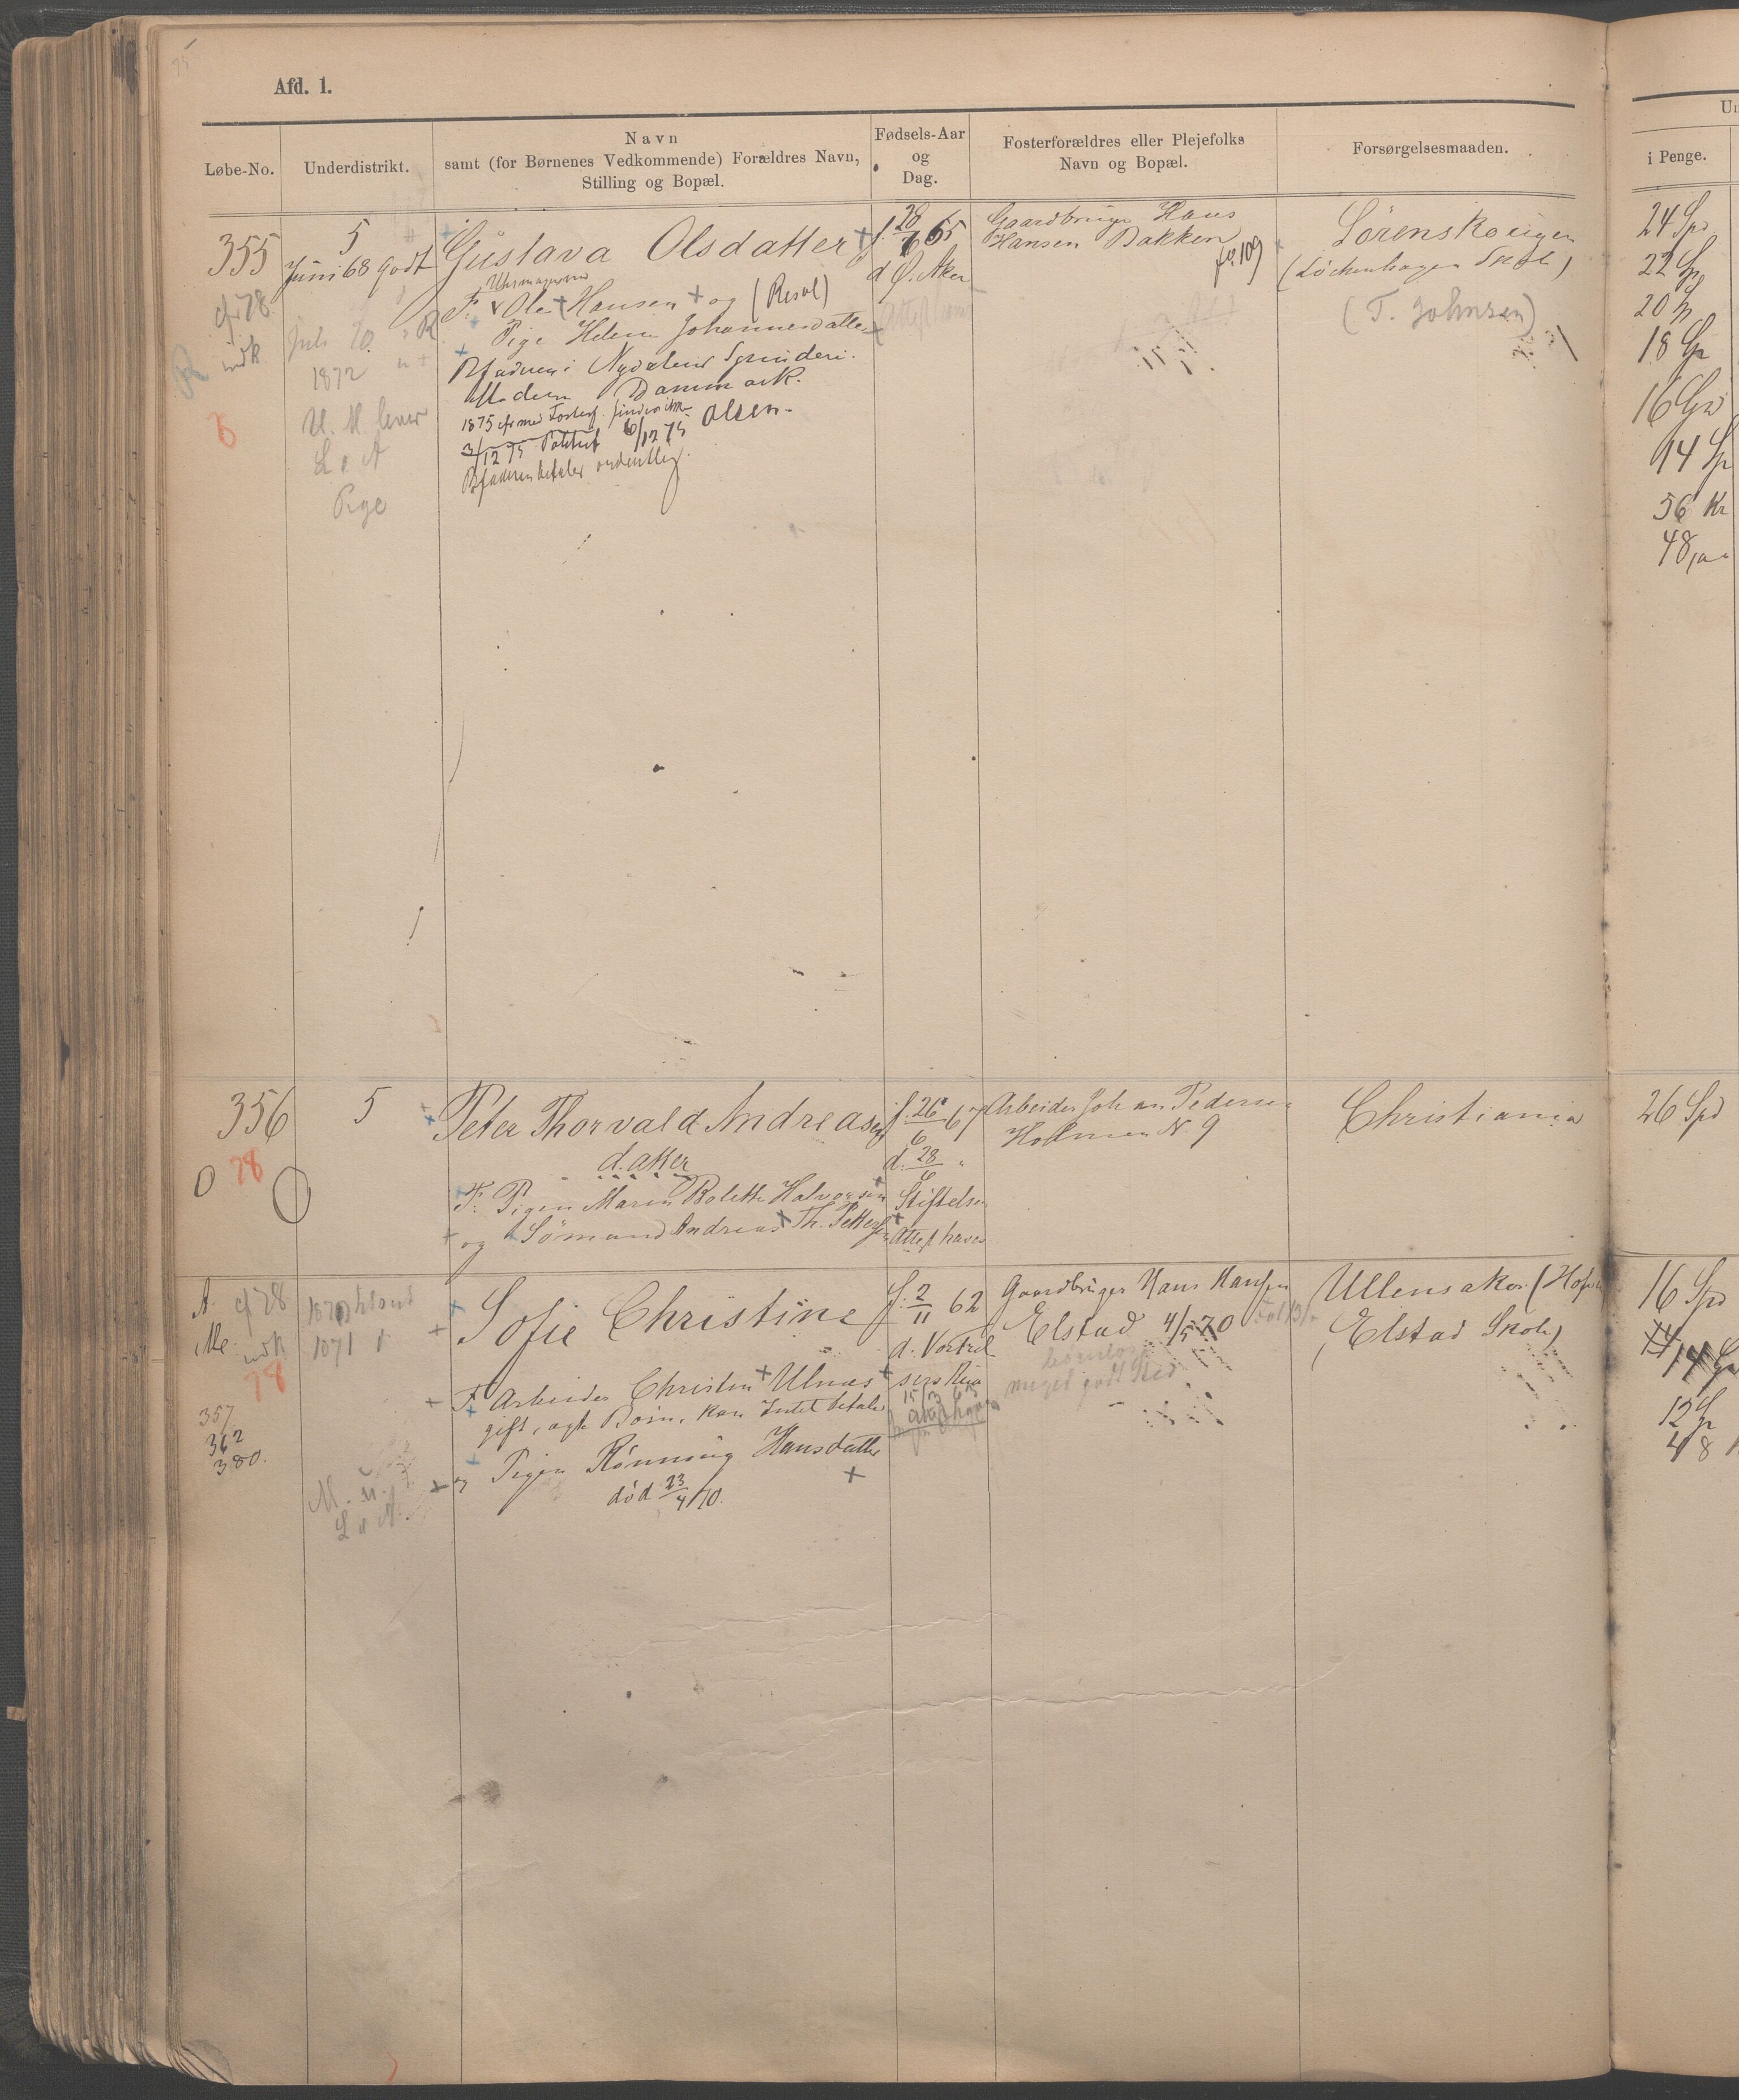 Afd. 1.
Løbe-No.
Underdistrikt.
Navn
samt (for Børnenes Vedkommende) Forældres Navn,
Stilling og Bopæl.
Fødsels-Aar
og
Dag.
Fosterforældres eller Plejefolks
Navn og Bopæl.
Forsørgelsesmaaden.
i Penge.
355
cfr 78.
indk
5
Juni 68 godt
1872
U. M. lever
L v A
Pige
Gustava Olsdatter
F. Ole Hansen og (Resol)
Pige Helene Johannesdatter
Bfaderen i Nydalens Spinderi.
Moderen Danmark.
3/12 75 6/12 75 Olsen
Bfaderen betaler ordentlig.
f. 28/7 65
d. Ø. Aker
Gaardbruger Hans
Hansen Bakken
fo. 109
Sörenskougen
(Løchenhagen Skole)
(T. Johnsen)
24 Spd
22 Sp
20 Sp
18 Sp
16 Spd
14 Sp
56 Kr
48
356
78
O
5
Peter Thorvald Andreasen
d. Aker
F. Pigen Maren Bolette Halvorsen
og Sömand Andreas Th. Petters
f. 26/6 67
d. 28/6 "
Stiftelsen
Attest haves
Arbeider Johan Pedersen
Holmen N. 9
Christiania
26 Spd
A. cf 78
indk
78
357
362
380.
1871
M. u.
L v A.
Sofie Christine
F. Arbeider Christen Ulnæs
gift, ægte Børn, kan Intet betale
og Pigen Rönnaug Hansdatter
död 23/4 70.
f. 2/11 62
d. Vor Frel-
sers
15/3 63
Gaardbruger Hans Hansen
Elstad 4/5 70
meget godt Sted
Ullensaker (Hofin
Elstad Skole)
16 Spd
14 Sp
12 Sp
48